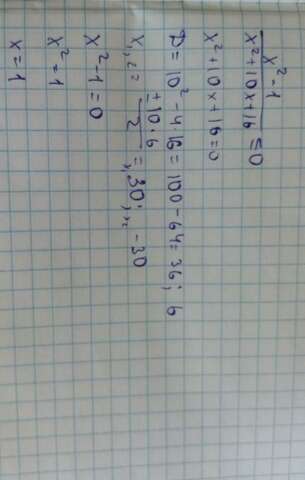 x²-1
x²+10x+16 =0
x²+10x+16=0
D=10²-4·16=100-64=36; 6
x₁,₂= ±10·6
2 = x₁ 30; x₂ -30
x²-1=0
x²=1
x=1